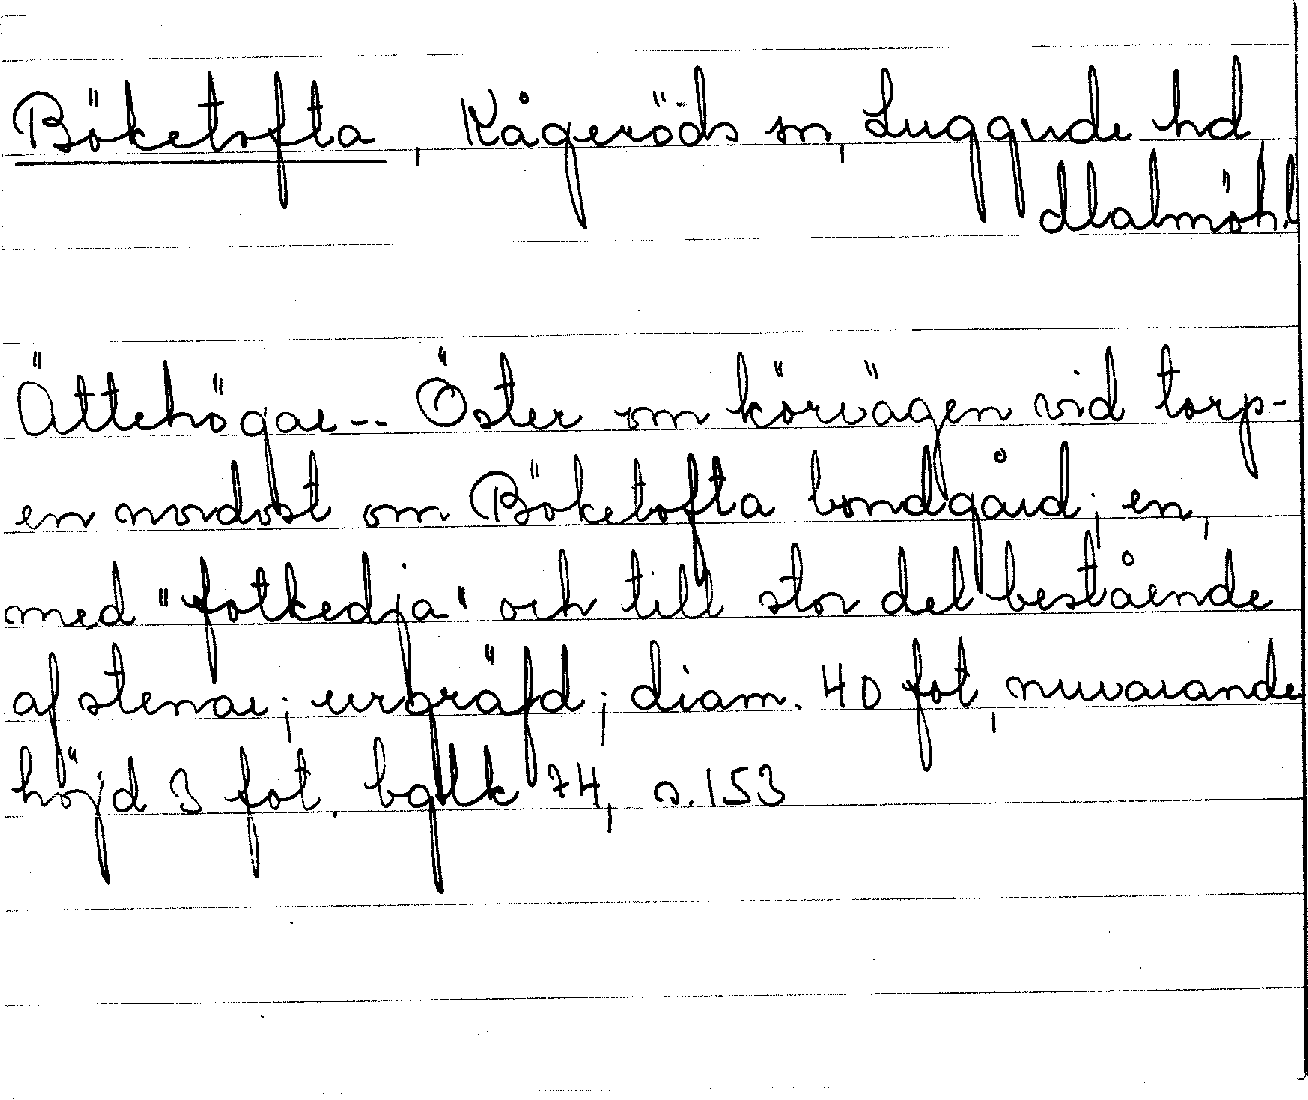 Böketofta, Kågeröds sn, Luggude hd
Malmöhl
Ättehögar-- Öster om körvägen vid torp-
en nordost om Böketofta bondgård; en,
med "fotkedja" och till stor del bestående
af stenar; urgräfd; diam. 40 fot, nuvarande
höjd 3 fot. bglk 74, s.153